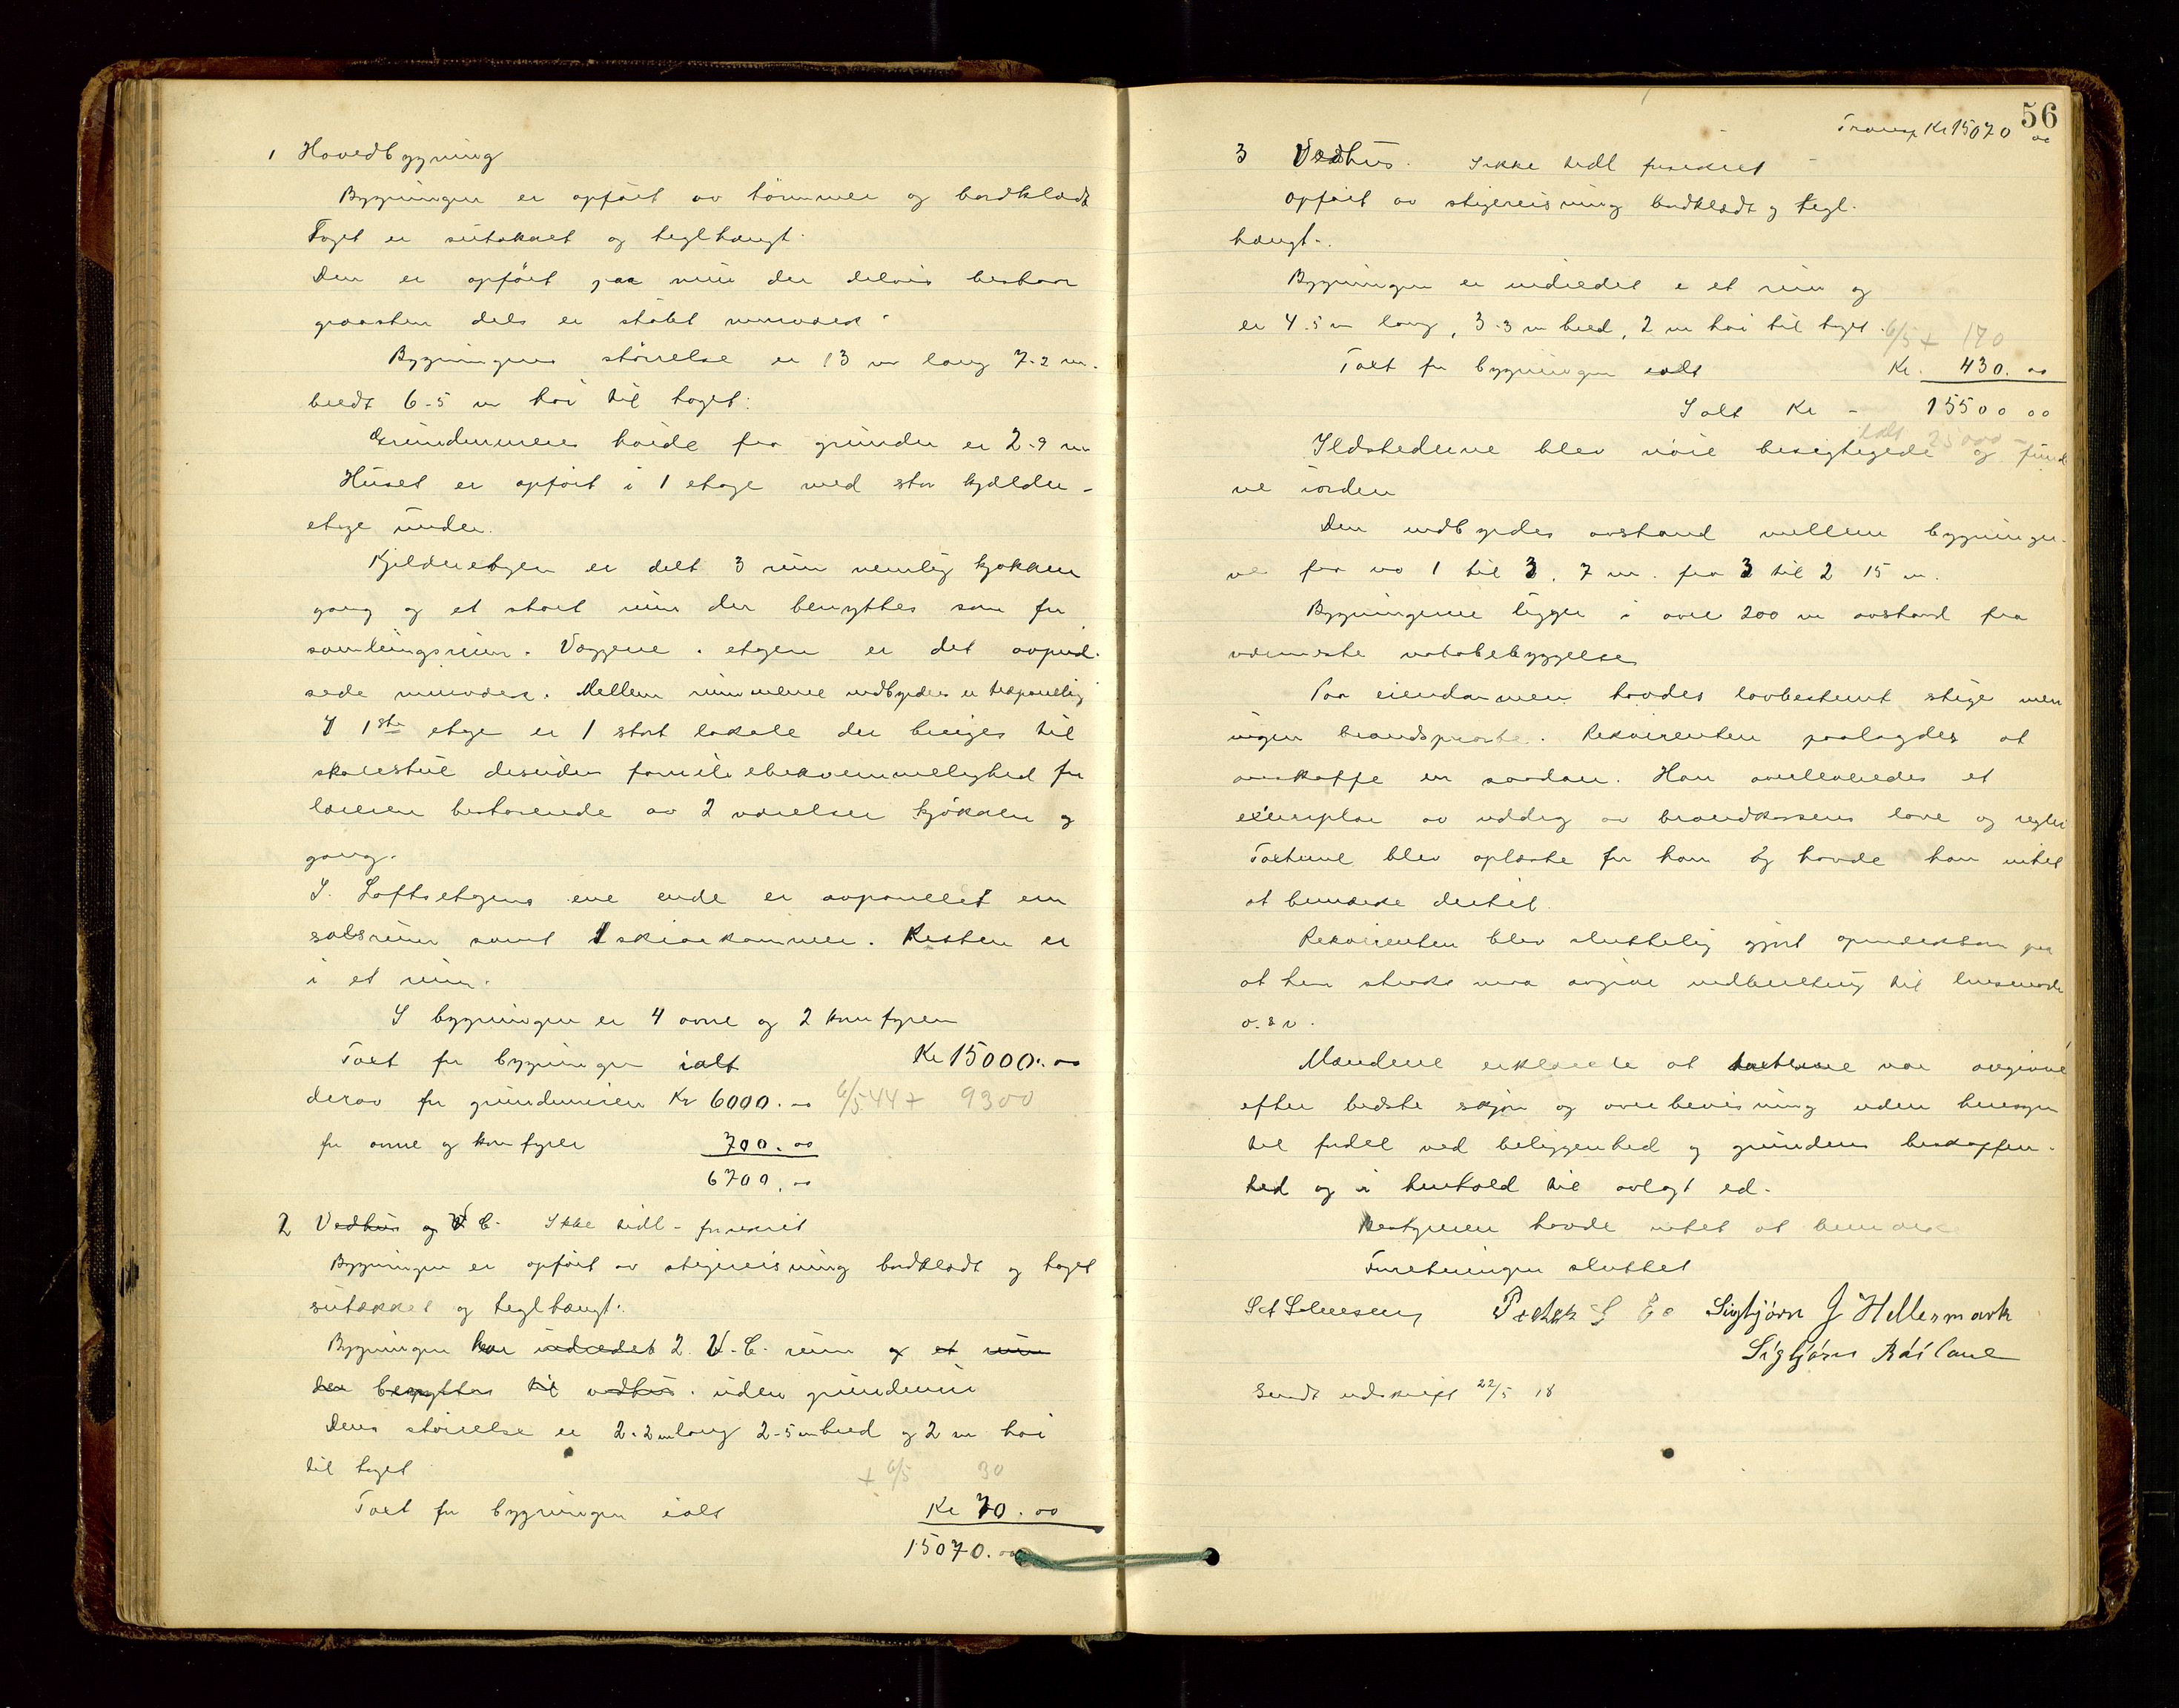 1 Hovedbygning
Bygningen er opført av tømmer og bordklædt
Taget er sutækket og teglhængt.
Den er opført paa mur der delvis bestaar
graasten dels er støbt murværk.
Bygningens størrelse er 13 m lang 7.2 m.
bredt 6.5 m høi til taget.
Grundmurens høide fra grunden er 2.9 m
Huset er opført i 1 etage med stor kjelder-
etage under.
Kjelderetagen er delt 3 rum nemlig kjøkken
gang og et stort rum der benyttes som for
samlingsrum. Væggene i etagen er det avpud-
sede murværk. Mellem rummene indbyrdes er træpaneling
I 1ste etage er 1 stort lokale der bruges til
skolestue desuden familiebekvemmelighed for
læreren bestaaende av 2 værelser kjøkken og
gang.
I Loftsetagens ene ende er avpanellet en
salsrum samt 1 skraakammer. Resten er
i et rum.
I bygningen er 4 ovne og 2 komfyrer
Taxt for bygningen ialt Kr 15000.00
derav for grundmuren Kr 6000.00 6/5 44 + 9300
for ovne og komfyrer 700.00
6700.00
2 Vedhus og V.C. Ikke tidl. forsikret
Bygningen er opført av steijereisning bordklædt og taget
sutækket og teglhængt.
Bygningen har indredet 2 V.C. rum og et rum
der benyttes til vedhus. uden grundmur
Dens størrelse er 2.2 m lang 2.5 m bred og 2 m høi
til taget
+ 6/5 30
Taxt for bygningen ialt Kr 70.00
15070.00
56
Transp Kr 15070 00
3 Vedhus. Ikke tidl forsikret
Opført av steijereisning bordklædt og tegl-
hængt.
Bygningen er indredet i et rum og
er 4.5 m lang, 3.3 m bred, 2 m høi til taget. 6/5 + 170
Taxt for bygningen ialt Kr. 430.00
Ialt Kr - 15500 00
ialt 25000 -
Ildstederne blev nøie besigtigede og fund
ne iorden
Den indbyrdes avstand mellem bygninger-
ne fra no 1 til 3. 7 m. fra 3 til 2 15 m.
Bygningerne ligger i over 200 m avstand fra
nærmeste nabobebyggelse
Paa eiendommen havdes lovbestemt stige men
ingen brandspand. Rekvirenten paalagdes at
anskaffe en saadan. Han overleveredes et
exemplar av uddrag av brandkassens love og regler
Taxterne blev oplæste for ham og havde han intet
at bemærke dertil.
Rekvirenten blev sluttelig gjort opmærksom paa
at han straks maa avgive indberetning til
o.s.v.
Mændene erklærede at taxterne var avgivne
efter bedste skjøn og overbevisning uden hensyn
til fordel ved beliggenhed og grundens beskaffen-
hed og i henhold til avlagt ed.
Bestyreren havde intet at bemærke
Forretningen sluttet
Sigbjørn G Hellesmark
Sigbjørn
Sendt udskrift 22/5 18